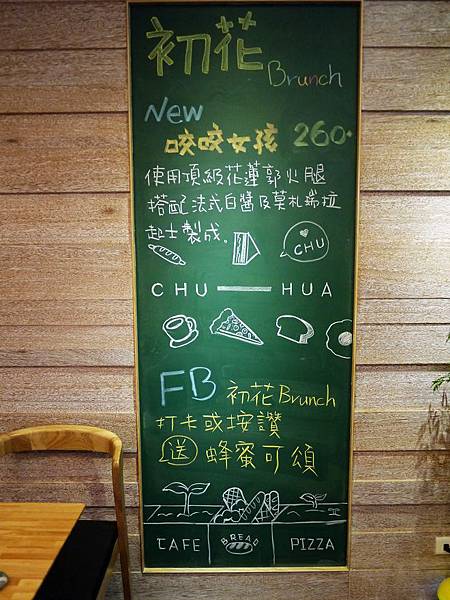 初花 Brunch
New
咬咬女孩 260+
使用頂級花蓮郭火腿
搭配法式白醬及莫札瑞拉
起士製成。
CHU
CHU HUA
FB 初花 Brunch
打卡或按讚
送 蜂蜜可頌
CAFE BREAD PIZZA